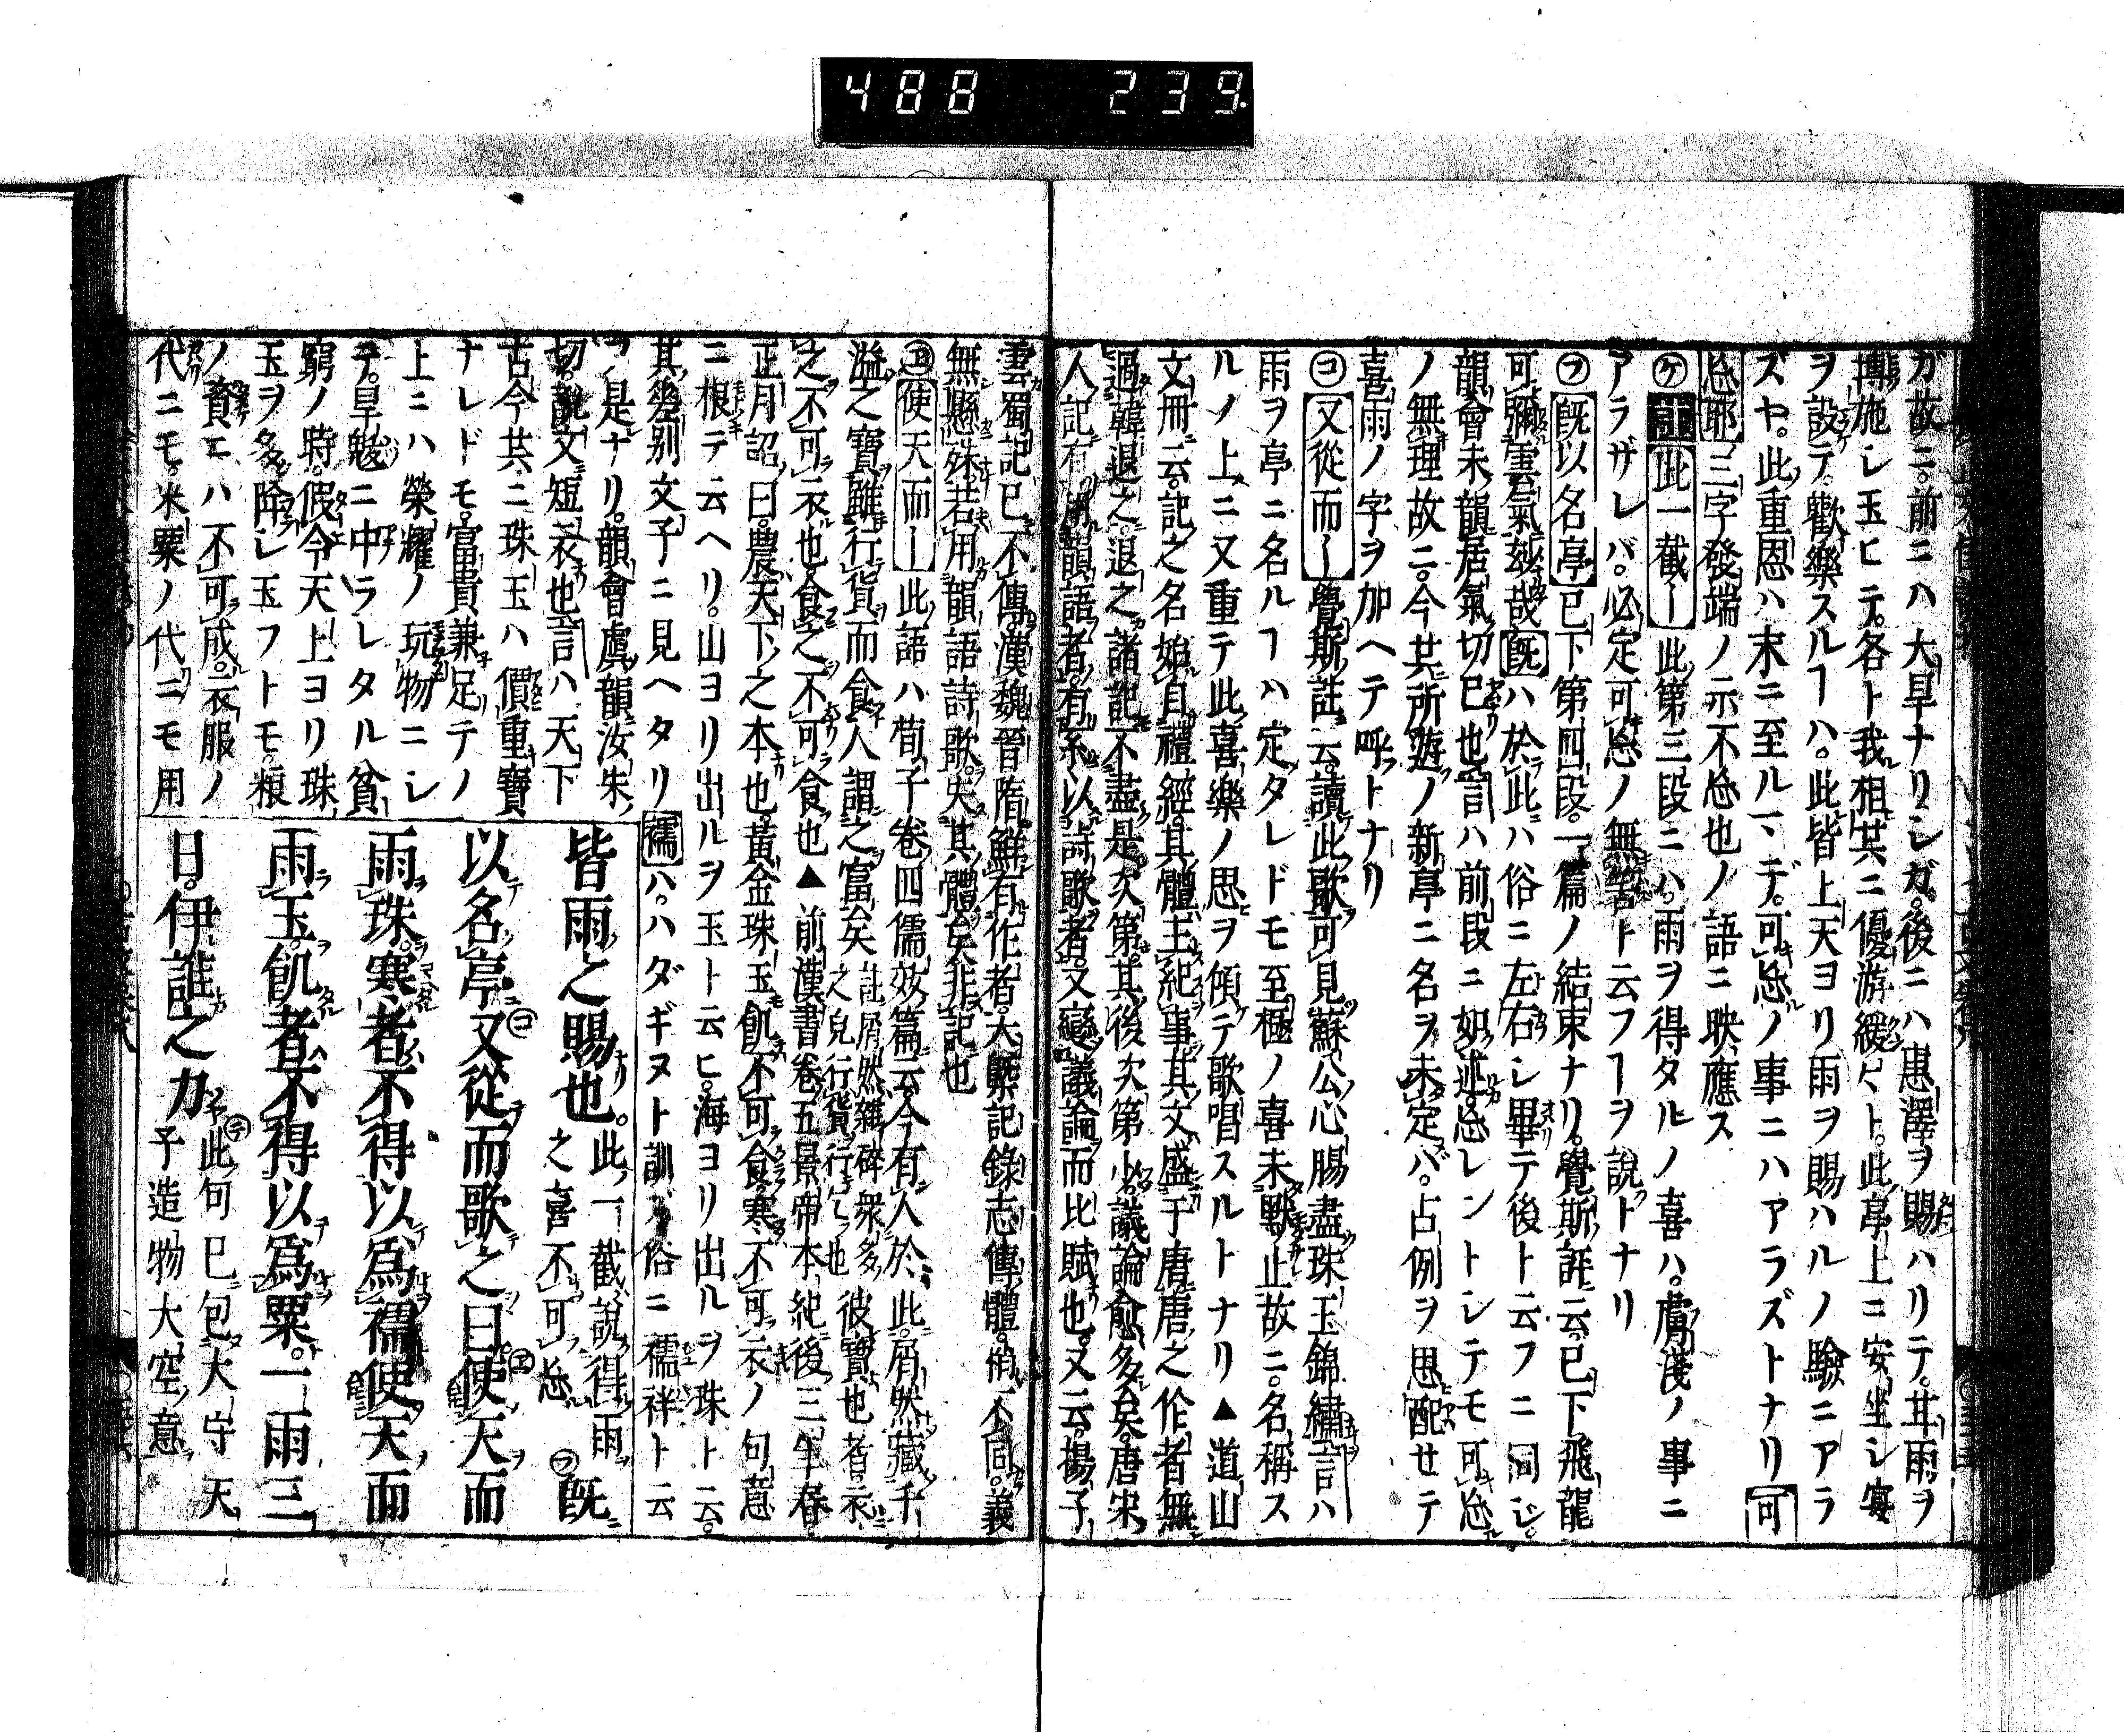 488 239
ガ故ニ。前ニハ大旱ナリシガ。後ニハ惠澤ヲ賜ハリテ。其雨ヲ
博施シ玉ヒテ。各ト我相共ニ優游緩々ト。此亭上ニ安坐シ宴
ヲ設テ。歡樂スルヿハ。此皆上天ヨリ雨ヲ賜ハルノ驗ニアラ
ズヤ。此重恩ハ末ニ至ルマデ。可忘ノ事ニハアラズトナリ可
忘耶三字發端ノ示不忘也ノ語ニ映應ス
㋘註此一截〡此第三段ニハ。雨ヲ得タルノ喜ハ。膚淺ノ事ニ
アラザレバ。必定可忘ノ無筈ト云フヿヲ說トナリ
㋫既以名亭已下第四段。一篇ノ結束ナリ。覺斯註云。已下飛龍
可彌雲氣玆哉既ハ於此ハ俗ニ左右シ畢テ後ト云フニ同シ。
韻會未韻居氣切已也言ハ前段ニ如述忘レントシテモ可忘
ノ無理故ニ。今其所遊ノ新亭ニ名ヲ未定バ。占例ヲ思配セテ
喜雨ノ字ヲ加ヘテ呼トナリ
㋙又從而〡覺斯註云。讀此歌可見蘇公心腸盡珠玉錦繡言ハ
雨ヲ亭ニ名ルヿハ定タレドモ至極ノ喜未歇止故ニ。名稱ス
ルノ上ニ又重テ此喜樂ノ思ヲ傾テ歌唱スルトナリ▲道山
文冊云。記之名始自禮經。其體主紀事其文盛于唐唐之作者無
過韓退之退之諸記不盡是次第。其後次第少議論愈多矣。唐宋
人記有韻語者。有系以詩歌者。又變議論而比賦也。又云。揚子
雲蜀記已不傳。漢魏晉隋鮮有作者。大槩記錄志傳體。稍不同。義
無懸殊若用韻語詩歌。失其體矣非記也
㋓使天而〡此語ハ荀子卷四儒效篇云。今有人於此。屑然藏千
溢之寶雖行貨而食人謂之富矣註屑然雜碎衆多
之皃行貨行乞也彼寶也者衣
之不可衣也食之不可食也▲前漢書卷五景帝本紀後三年春
正月詔曰。農天下之本也。黃金珠玉飢不可食。寒不可衣ノ句意
ニ根テ云ヘリ。山ヨリ出ルヲ玉ト云ヒ。海ヨリ出ルヲ珠ト云。
其差別文子ニ見ヘタリ襦ハ。ハダギヌト訓ズ俗ニ襦袢ト云
フ是ナリ。韻會虞韻汝朱
切。說文短衣也言ハ天下
古今共ニ珠玉ハ價重寶
ナレドモ。富貴兼足テノ
上ニハ榮耀ノ玩物ニシ
テ。旱魃ニ中ラレタル貧
窮ノ時。假令天上ヨリ珠
玉ヲ多降シ玉フトモ。粮
ノ資ニハ不可成。衣服ノ
代ニモ。米粟ノ代ニモ用
皆雨之賜也。此一截說得雨
之喜不可忘㋫既
以名亭㋙又從而歌之曰。㋓使天而
雨珠。寒者不得以爲襦使天而
雨玉。飢者不得以爲粟。一雨三
日。伊誰之力㋢此句已包太守天
子造物大空意